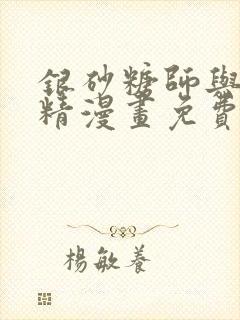 銀砂糖師與
精漫畫免費
楊敏養